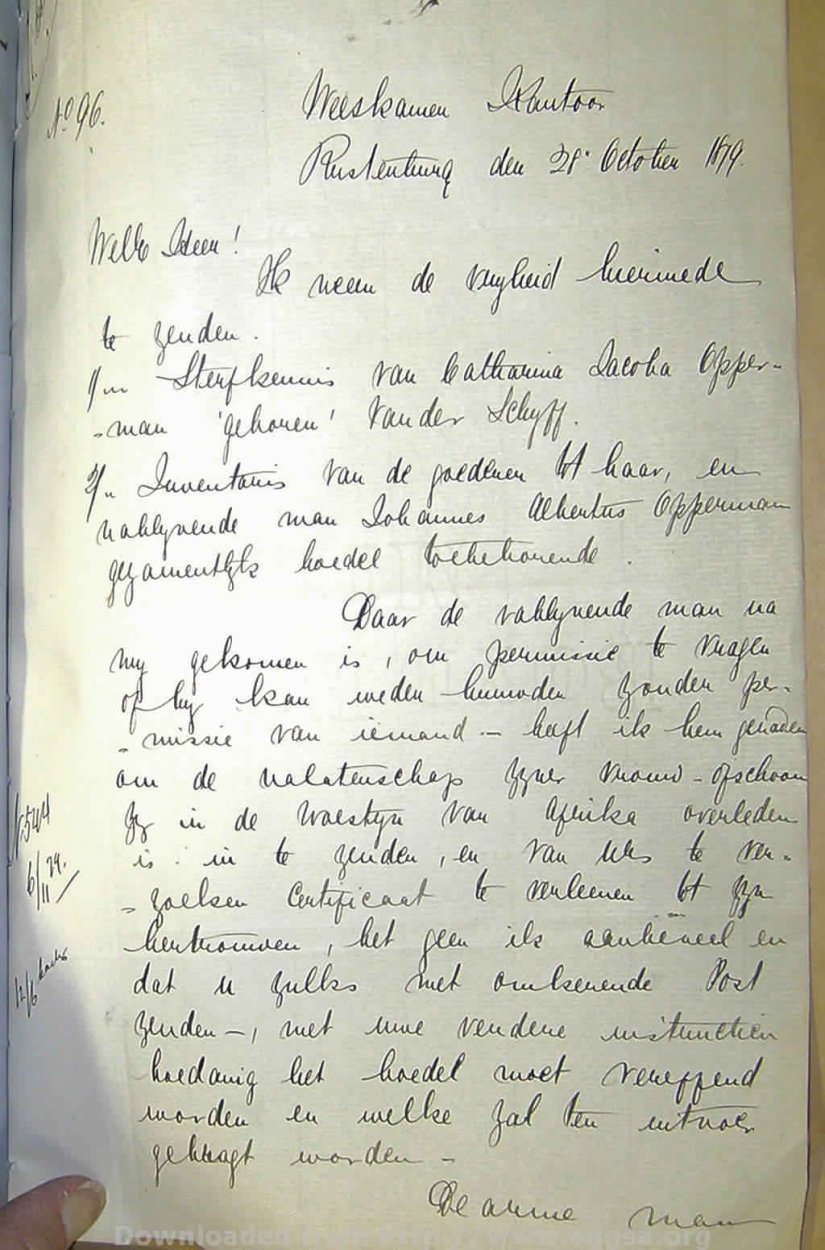 No 96.
Weeskamer Kantoor
Rustenburg den 28 October 1879.
WelEd Heer!
Ik neem de vryheid hiermede
te zenden.
1/n Sterfkennis van Catharina Jacoba Opper-
-man 'geboren' Van der Schyff.
2/n Inventaris van de goederen tot haar, en
nablyvende man Johannes Albertus Opperman
gezamentlyk boedel toebehorende.
Daar de nablynende man na
my gekomen is, om permissie te vragen
of hy kan weder huwden zonder per-
-missie van iemand - heeft ik hem geraden
om de nalatenschap zyner vrouw - ofschoon
zy in de Woestyn van Afrika overleden
is in te zenden, en van UEs te ver-
-zoeken Certificaat te verleenen tot zyn
hertrouwen, het geen ik aanbeveel en
dat u zulks met omkerende Post
zenden -, met uwe verdere instructien
hoedanig het boedel moet vereffend
worden en welke zal ten uitvoer
gebragt worden -
De arme man
N 544
6/11 79.
12/6
Downloaded from http://www.eggsa.org